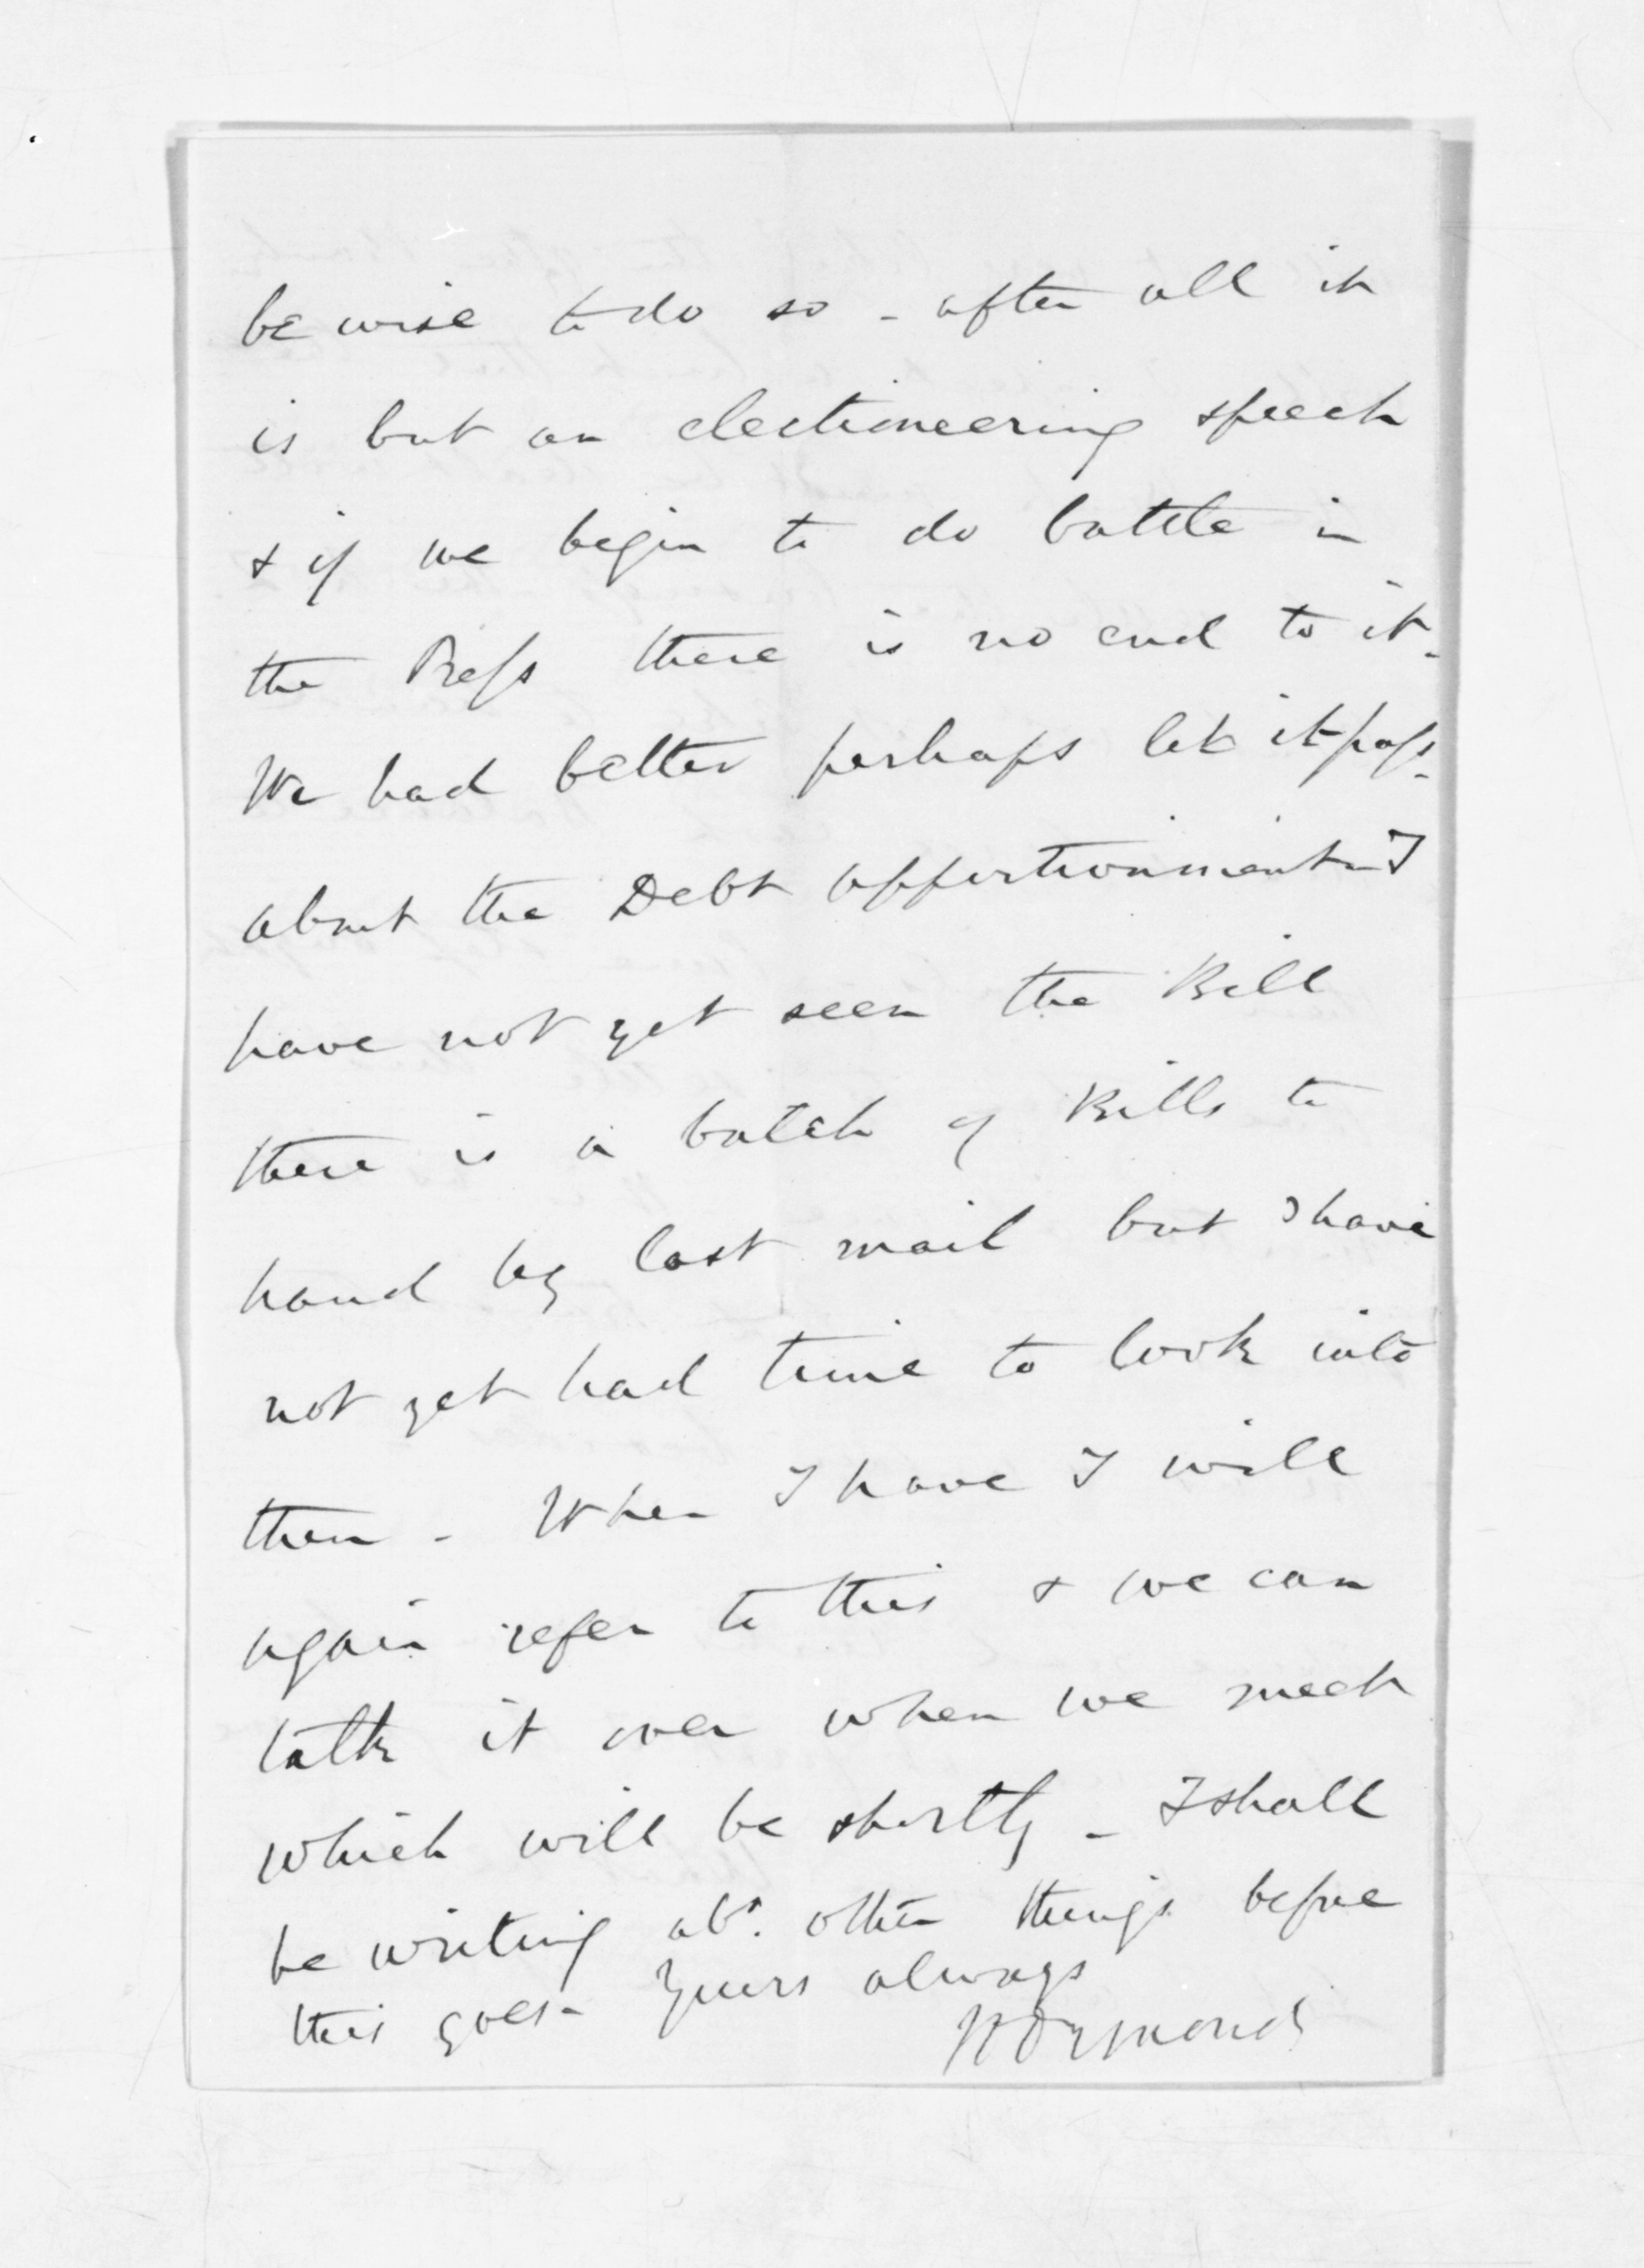 be wise to do so - after all it
is but an electioneering speech
& if we begin to do battle in
the Press there is no end to it -
We had better perhaps let it pass -
about the Debt apportionment I
have not yet seen the Bill
there is a batch of Bills to
hand by last mail but I have
not yet had time to look into
them - When I have I will
again refer to this & we can
talk it over when we meet
which will be shortly - I shall
be writing abt. other things before
this goes - Yours always
W Ormond